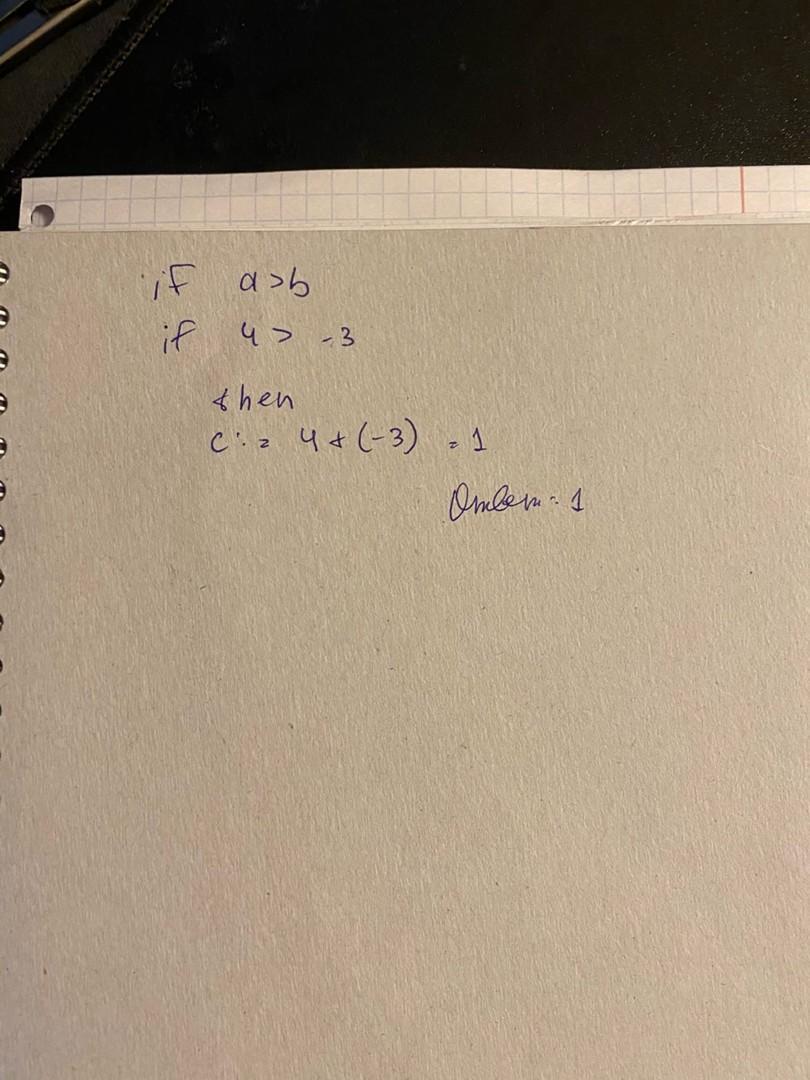 if a>b
if 4> -3
then
c:= 4+(-3) = 1
Ответ: 1